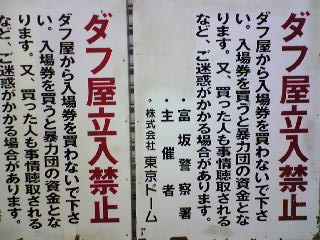 ダフ屋立入禁止
ダフ屋から入場券を買わないで下さ
い。入場券を買うと暴力団の資金とな
ります。又、買った人も事情聴取される
など、ご迷惑がかかる場合があります。
・富坂警察署
・主催者
・株式会社 東京ドーム
ダフ屋立入禁止
ダフ屋から入場券を買わないで下さ
い。入場券を買うと暴力団の資金とな
ります。又、買った人も事情聴取される
など、ご迷惑がかかる場合があります。